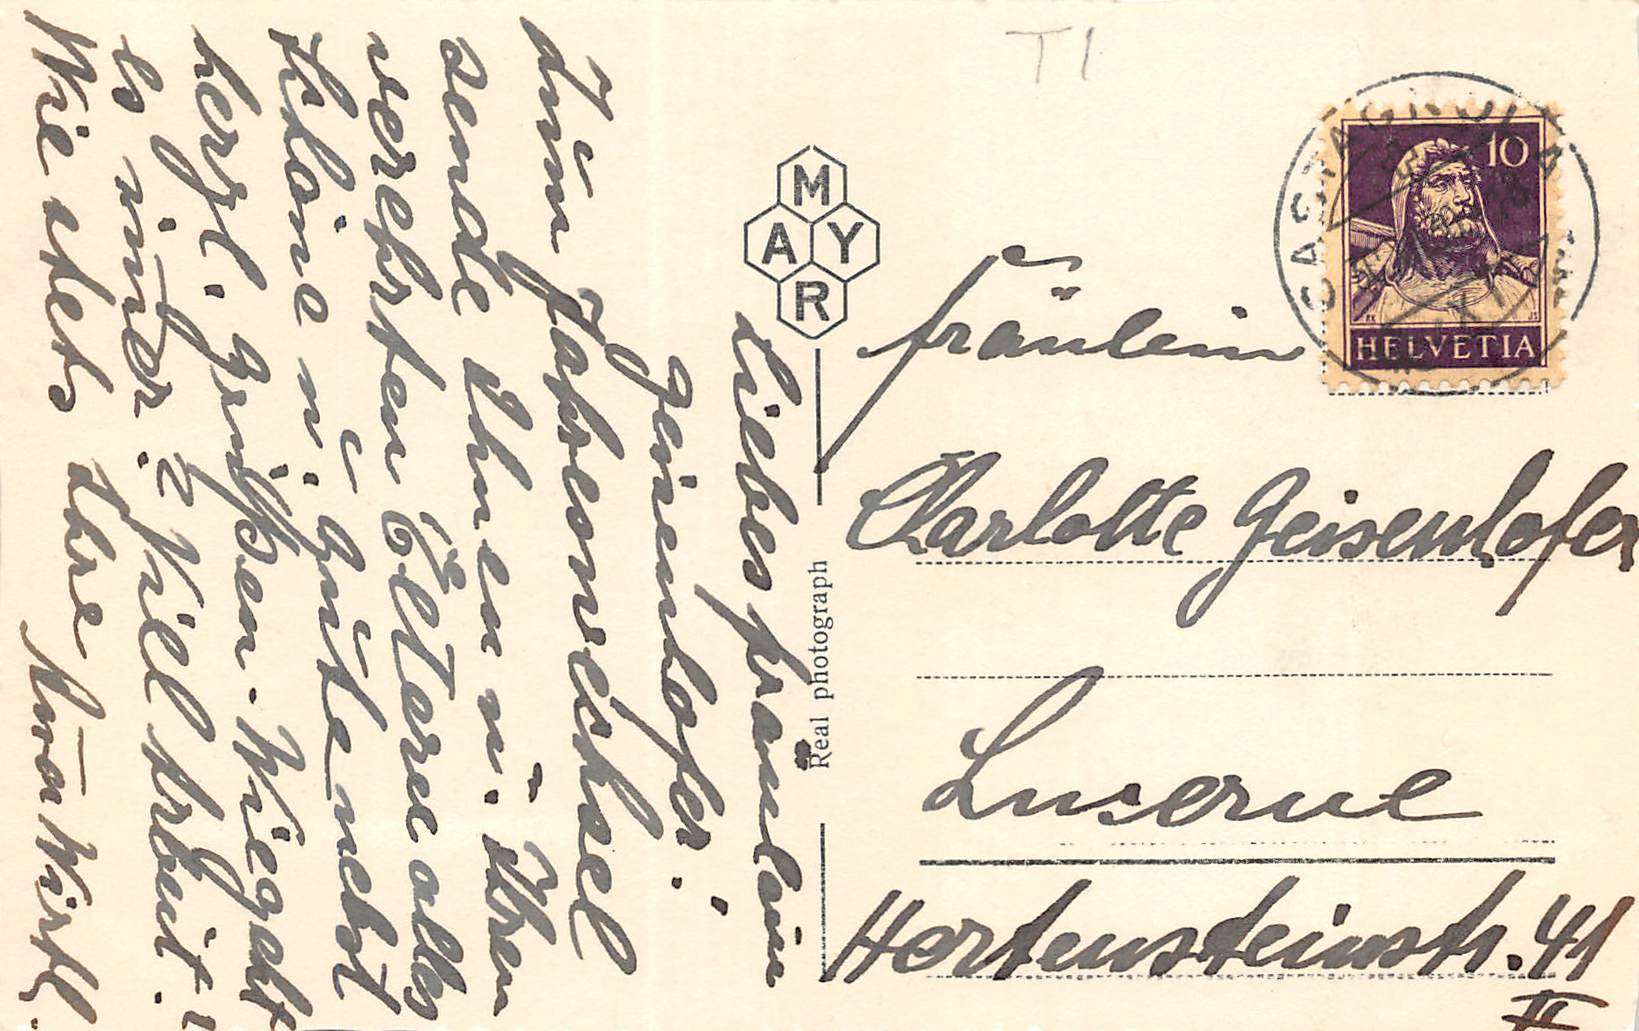 Liebes Fräulein
Geisenhofer!
Zum Jahreswechsel
sende Ihnen u. Ihren
verehrten Eltern alles
Schöne u. Gute nebst
herzl. Grüßen. Wie geht
es immer? Viel Arbeit!
Wie stets Ihre
T 1
M
A Y
R
Real photograph
CASTAGNOLA
10
HELVETIA
Fräulein
Charlotte Geisenhofer
Luzerne
Hertensteinstr. 41
II